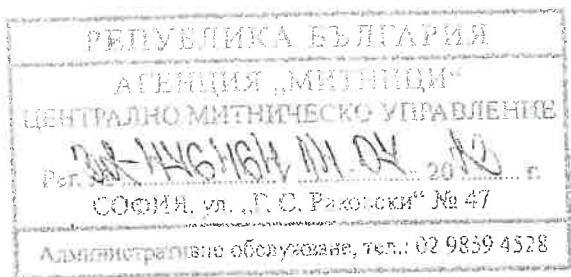 РЕПУБЛИКА БЪЛГАРИЯ
АГЕНЦИЯ „МИТНИЦИ“
ЦЕНТРАЛНО МИТНИЧЕСКО УПРАВЛЕНИЕ
Рег. № 20 г.
СОФИЯ, ул. „Г. С. Раковски“ № 47
Административно обслужване, тел.: 02 9859 4528